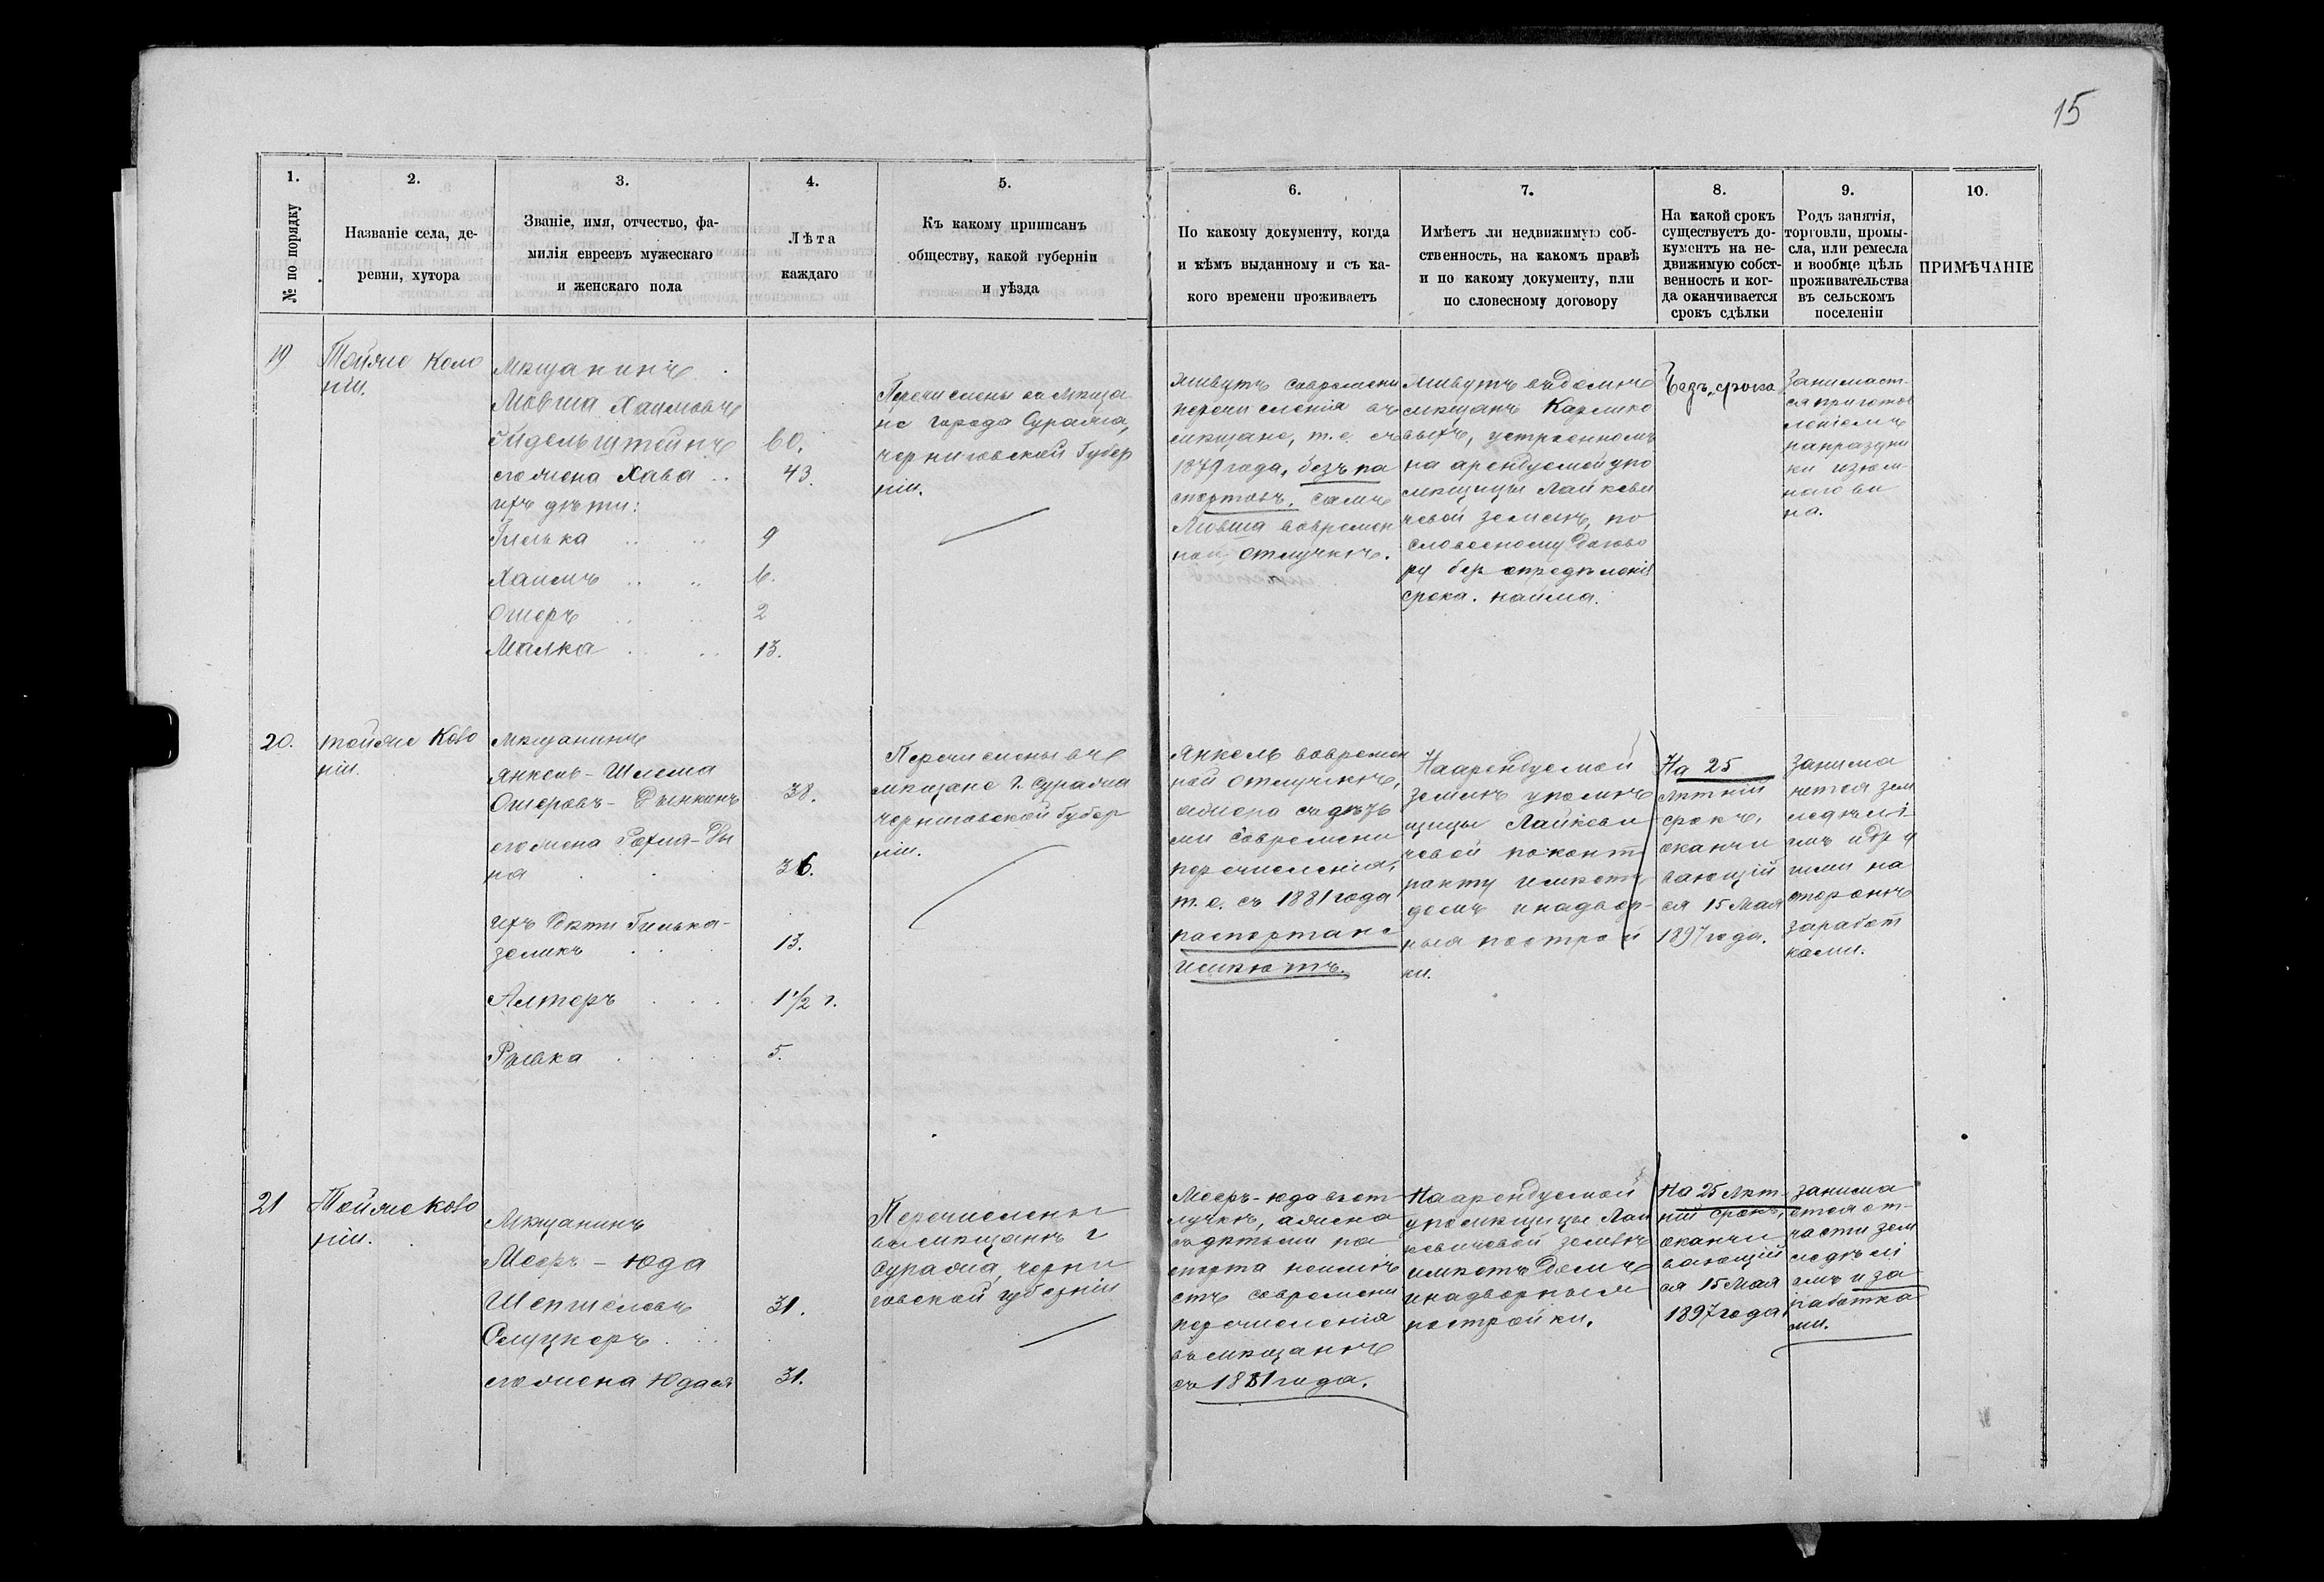 15
1.
№ по порядку
2.
Названіе села, де-
ревни, хутора
3.
Званіе, имя, отчество, фа-
милія евреевъ мужескаго
и женскаго пола
4.
Лѣта
каждаго
5.
Къ какому приписанъ
обществу, какой губерніи
и уѣзда
6.
По какому документу, когда
и кѣмъ выданному и съ ка-
кого времени проживаетъ
7.
Имѣетъ ли недвижимую соб-
ственность, на какомъ правѣ
и по какому документу, или
по словесному договору
8.
На какой срокъ
существуетъ до-
кументъ на не-
движимую собст-
венность и ког-
да оканчивается
срокъ сдѣлки
9.
Родъ занятія,
торговли, промы-
сла, или ремесла
и вообще цѣль
проживательства
въ сельскомъ
поселеніи
10.
ПРИМѢЧАНІЕ
19
Тойже Коло
ніи.
Мѣщанинъ
Мовша Хаимовъ
Эйдельштейнъ 60.
его жена Хава 43.
ихъ дѣти:
Гилька 9
Хаимъ 6.
Ошеръ 2
Малка 13.
Перечислены въ мѣща
не города Суража,
черниговской Губер
ніи.
живутъ современи
перечисленія въ
мѣщане, т.е. съ
1879 года, безъ па
спортовъ, самъ
Мовша вовремен
ной отлучкѣ.
живутъ въ домѣ
мѣщанъ Карлико
выхъ, устроенномъ
на арендуемой упо
мѣщицы Лайкеви
чевой землѣ, по
словесному догово
ру без опредѣленія
срока найма.
Безъ срока
занимает-
ся приготов
леніемъ
на праздни
ки изюм-
наго ви
на.
20.
тойже Коло
ніи.
Мѣщанинъ
Янкель-Шлема
Ошеровъ-Дынкинъ 38.
его жена Рохля-Ды
на 36.
ихъ дѣти Гилька-
зеликъ 13.
Алтеръ 1 1/2 г.
Рывка 5.
Перечислены въ
мѣщане г. Суража
черниговской Губер
ніи.
Янкель вовремен
ной отлучкѣ,
а жена съ дѣть
ми современи
перечисленія,
т.е. съ 1881 года
паспорта не
имѣютъ.
На арендуемой
землѣ упомѣ
щицы Лайкеви
чевой по конт
ракту имѣетъ
домъ и надвор-
ныя построй
ки.
На 25
лѣтній
срокъ,
оканчи
вающій
ся 15 Мая
1897 года.
занима
ется зем
ледѣлі-
емъ и др у
гими на
сторонѣ
заработ
ками.
21
Тойже Коло
ніи.
Мѣщанинъ
Мееръ-Юда
Шепшелевъ 31.
Слуцкеръ
его жена Юдася 31.
Перечислены
въ мѣщанѣ г
Суража, черни
говской губерніи
Мееръ-Юда въ от
лучкѣ, а жена
съ дѣтьми па
спорта неимѣ
етъ современи
перечисленія
въ мѣщанѣ
съ 1881 года.
На арендуемой
упомѣщицы Лай
кевичевой землѣ
имѣетъ домъ
и надворныя
постройки.
На 25 лѣт-
ній срокъ,
оканчи
вающій
ся 15 Мая
1897 года.
занима
ется от-
части зем
ледѣлі
емъ и за-
работка
ми.